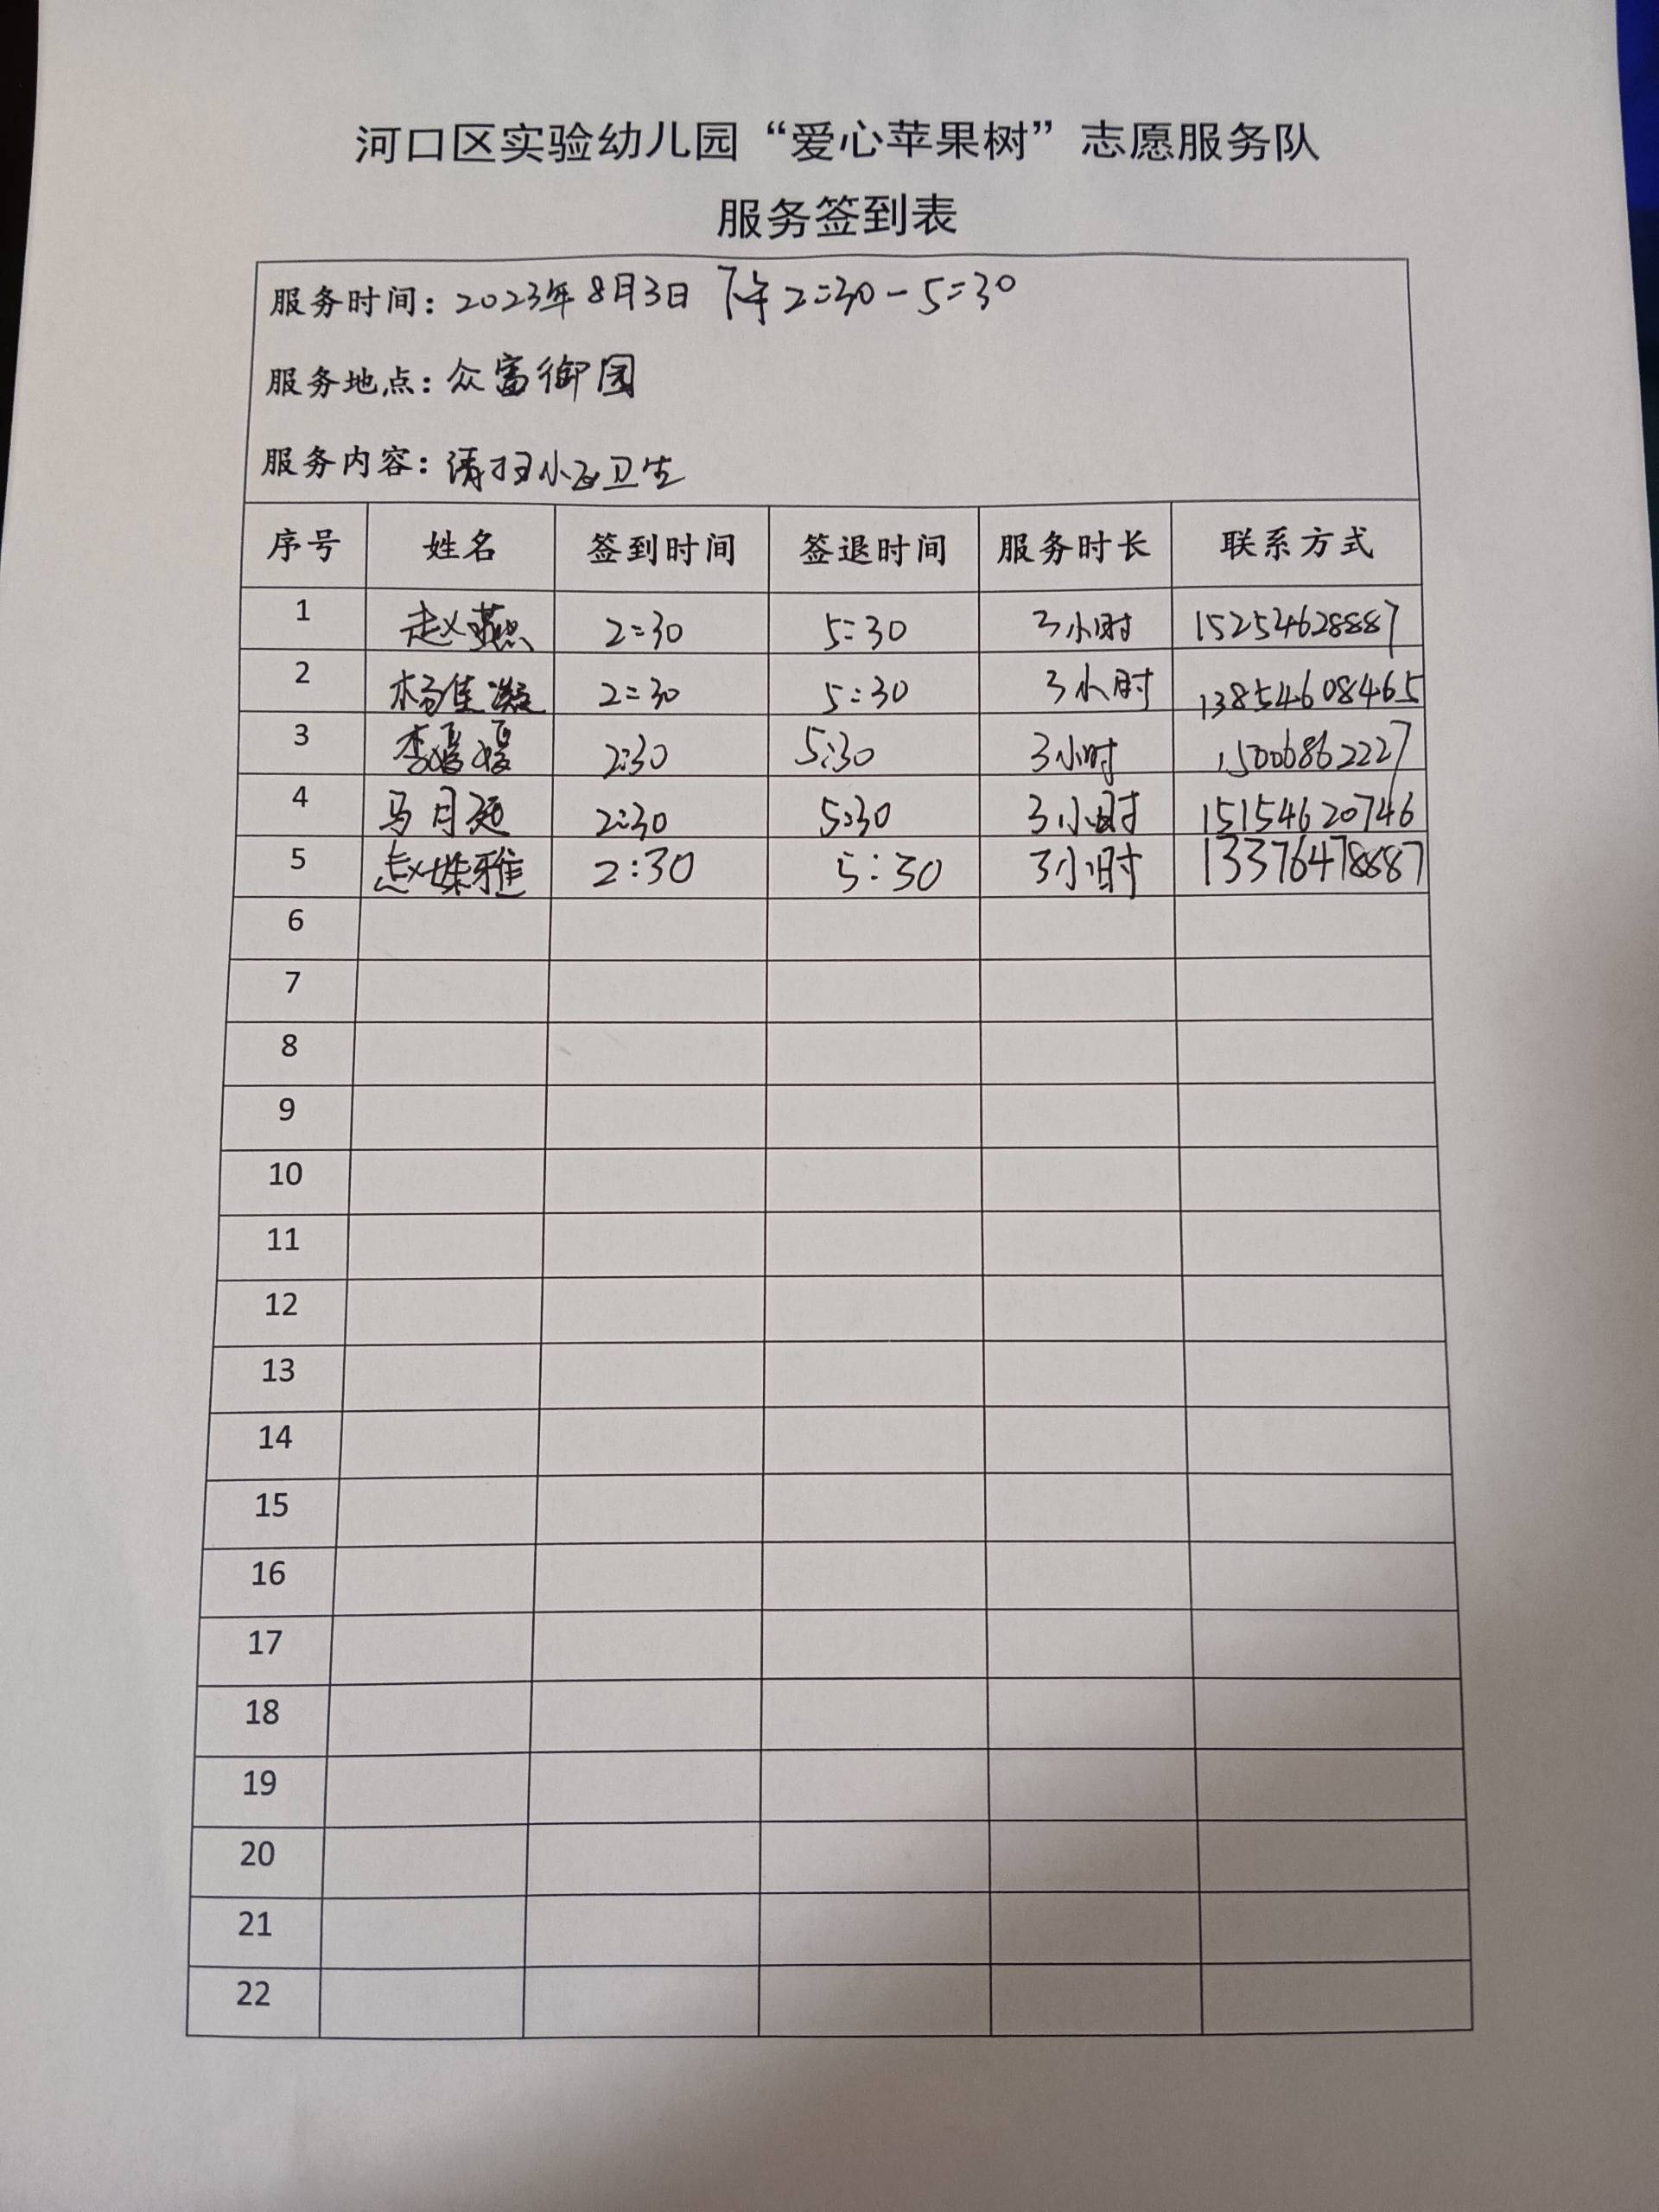 河口区实验幼儿园“爱心苹果树”志愿服务队
服务签到表
服务时间：2023年8月3日 下午2:30-5:30
服务地点：众富御园
服务内容：清扫小区卫生
序号 姓名 签到时间 签退时间 服务时长 联系方式
1 赵燕 2:30 5:30 3小时 15254628887
2 杨佳凝 2:30 5:30 3小时 13854608465
3 李媛媛 2:30 5:30 3小时 15006862227
4 马月 2:30 5:30 3小时 15154620746
5 赵姝雅 2:30 5:30 3小时 13376478887
6
7
8
9
10
11
12
13
14
15
16
17
18
19
20
21
22